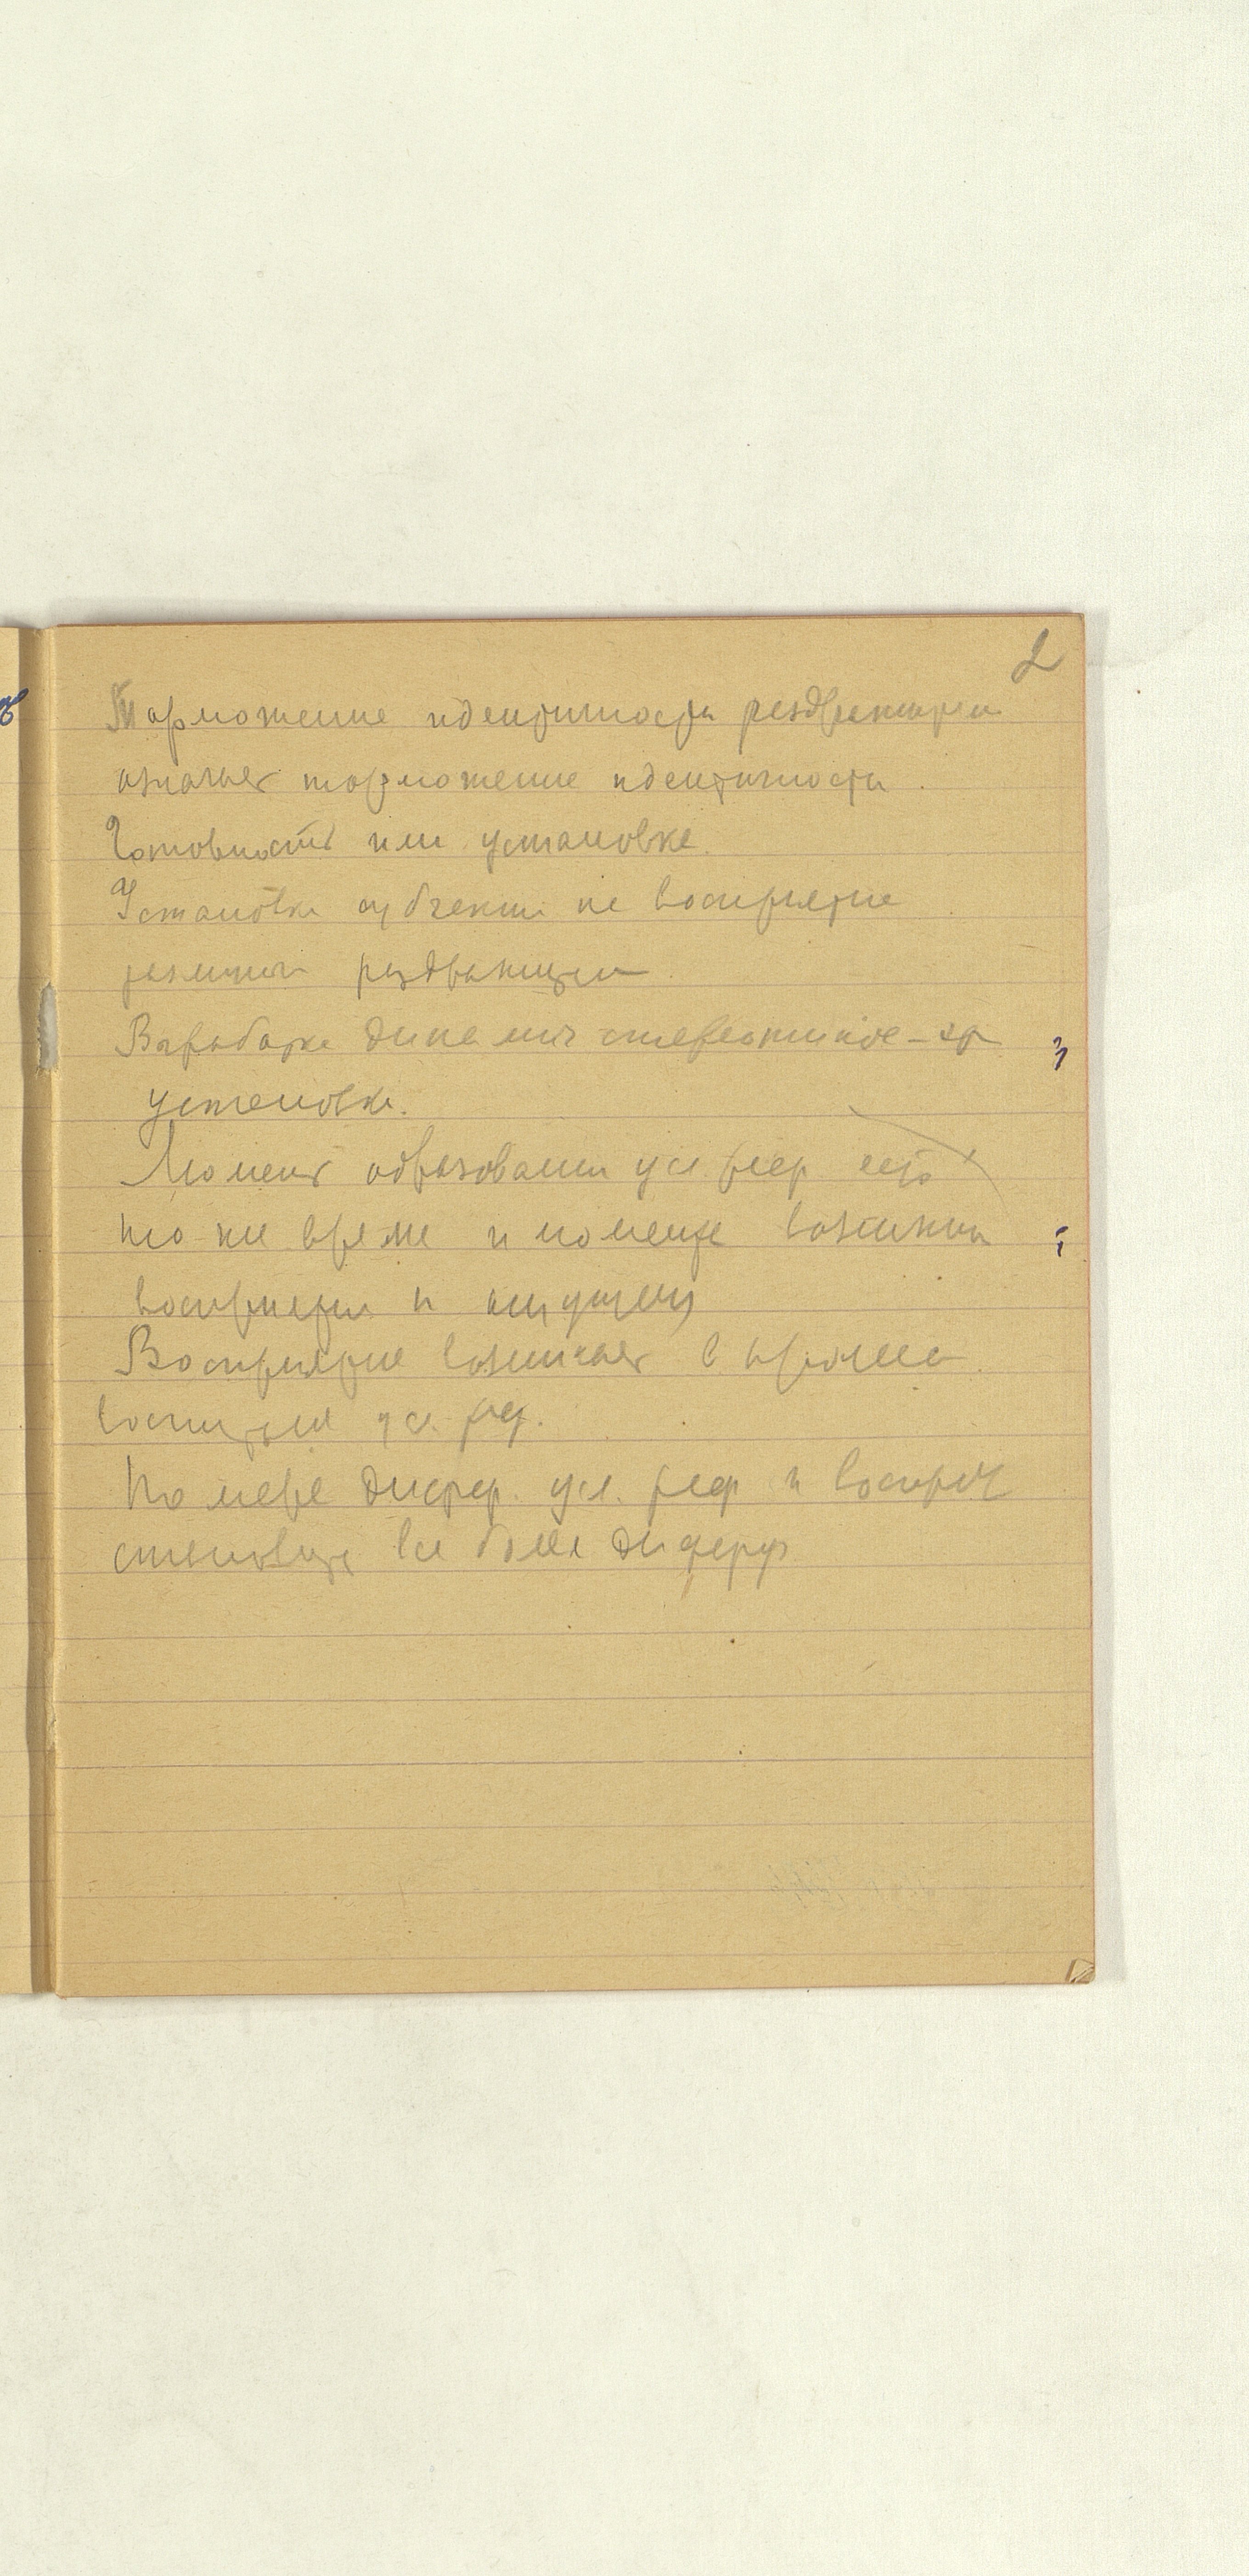 2
Торможение идентичности раздражители
означает торможение идентичности
Готовность или установке.
Установка субъекта не восприятие
различия раздражители
Выработка динамич стереотипов - эт
установка.
Момент образования усл. реф есть
то же время и момент возникн
восприятия и ощущен
Восприятие возникает в процессе
усл. реф.
По мере дифер. усл. реф и восприят
становится все более диферир